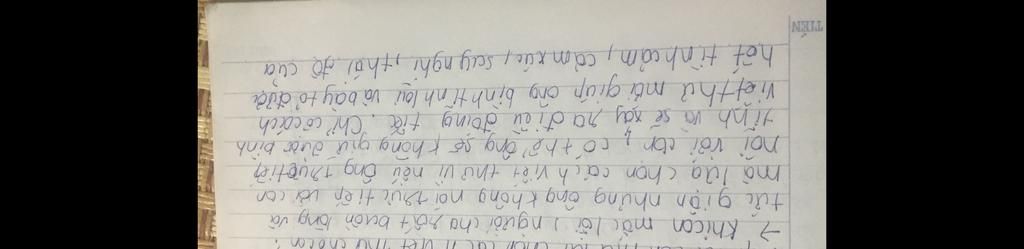 → Khi con mắc lỗi, người cha rất buồn lòng và
tức giận nhưng ông không nói trực tiếp với con
mà lựa chọn cách viết thư vì nếu ông trực tiếp
nói với con, có thể ông sẽ không giữ được bình
tĩnh và sẽ xảy ra điều đáng tiếc. Chỉ có cách
viết thư mới giúp ông bình tĩnh lại và bày tỏ được
hết tình cảm, cảm xúc, suy nghĩ, thái độ của
TIÊN